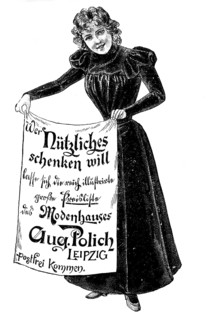 Wer
Nützliches
schenken will
lasse sich die reich illustrierte
große Preisliste
des Modenhauses
Aug. Polich
LEIPZIG
postfrei kommen.